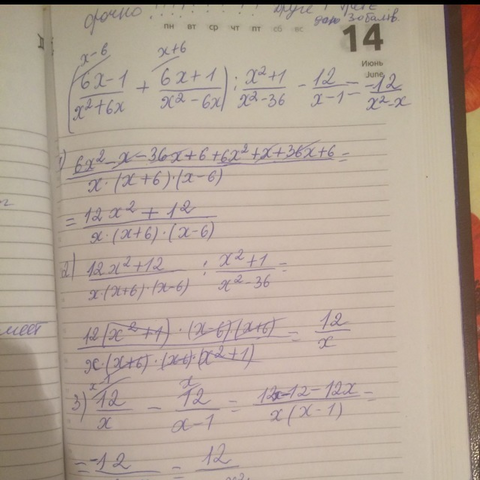 срочно!!!!!!!!
дарю 30 балов.
пн вт ср чт пт сб вс
14
Июнь
June
x-6 x+6
(6x-1/x²+6x + 6x+1/x²-6x) : x²+1/x²-36 - 12/x-1 = -12/x²-x
1) 6x²-x-36x+6+6x²+x+36x+6/x·(x+6)·(x-6) =
= 12x²+12/x·(x+6)·(x-6)
2) 12x²+12/x·(x+6)·(x-6) : x²+1/x²-36 =
12(x²+1)·(x-6)(x+6)/x(x+6)·(x-6)·(x²+1) = 12/x
3) 12/x - 12/x-1 = 12x-12-12x/x(x-1) =
= -12 = 12